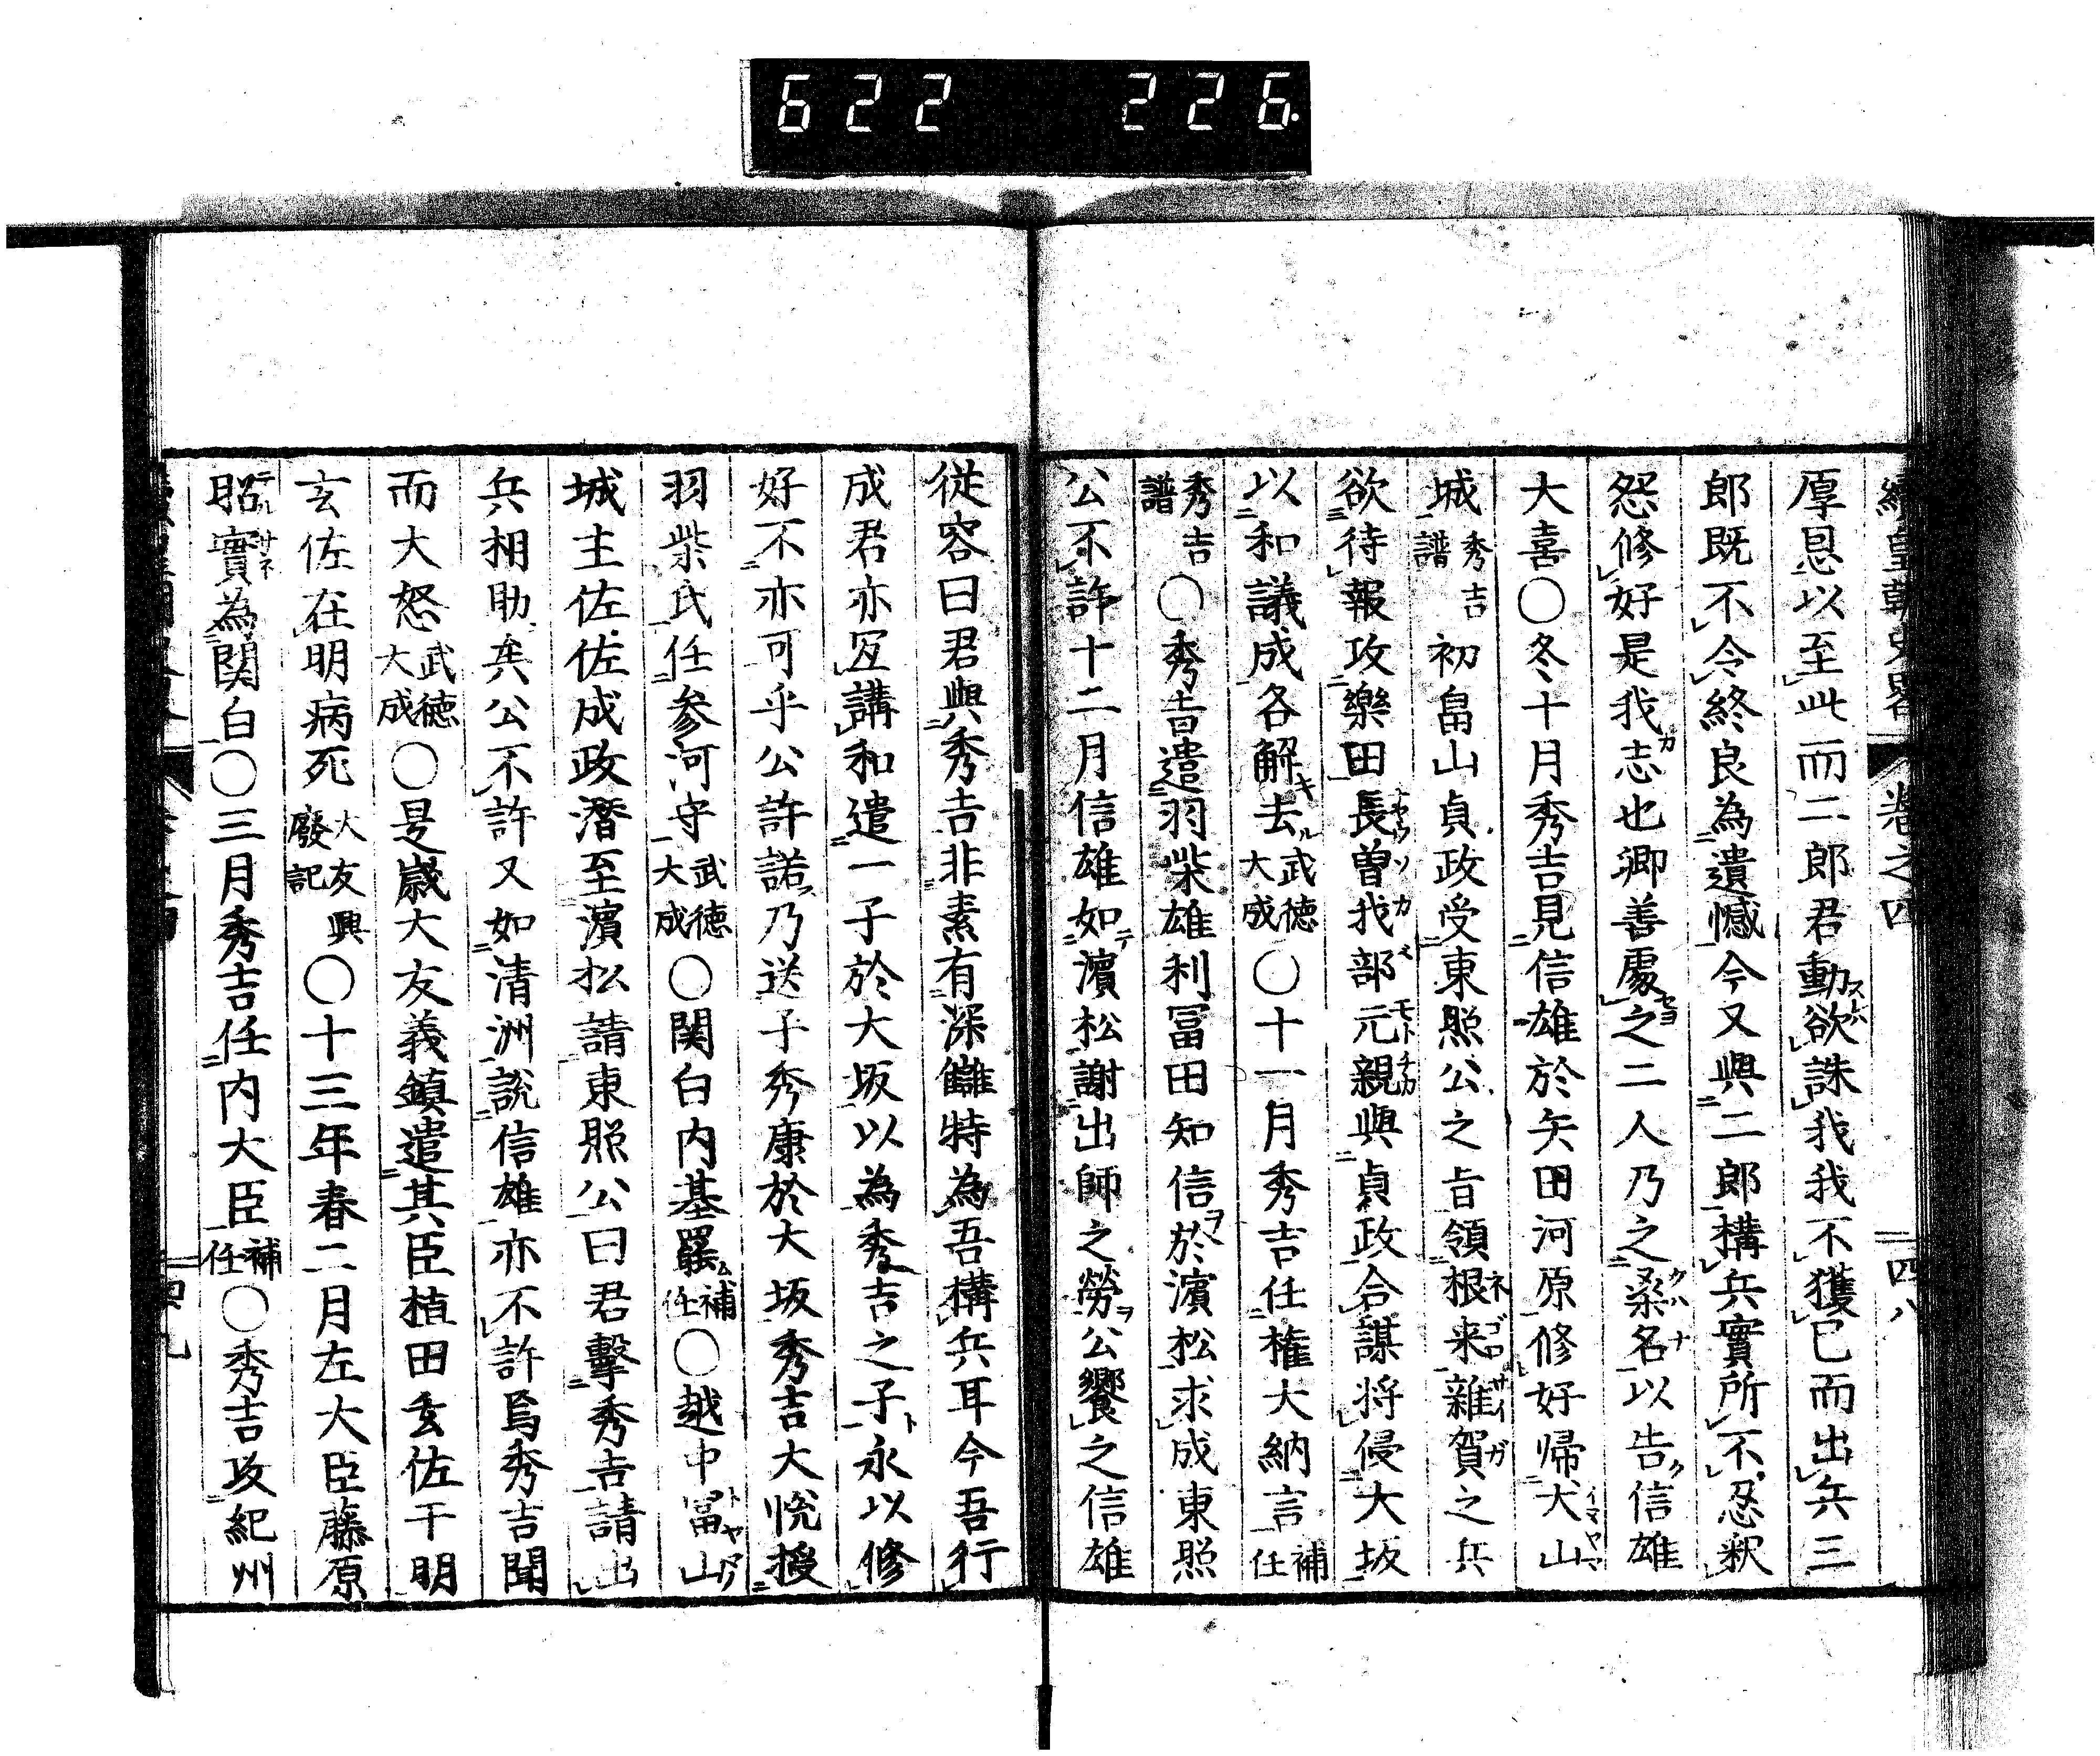 622 226
續皇朝史畧 卷之四 四八
厚恩以至此而二郎君動欲誅我我不獲已而出兵三
郎既不令終良為遺憾今又與二郎構兵實所不忍釈
怨修好是我志也卿善處之二人乃之桑名以告信雄
大喜〇冬十月秀吉見信雄於矢田河原修好帰犬山
城秀吉譜初畠山貞政受東照公之旨領根来雜賀之兵
欲待報攻樂田長曽我部元親與貞政合謀将侵大坂
以和議成各解去武徳大成〇十一月秀吉任権大納言補任
秀吉譜〇秀吉遣羽柴雄利冨田知信於濵松求成東照
公不許十二月信雄如濵松謝出師之勞公饗之信雄
従容曰君與秀吉非素有深讎特為吾構兵耳今吾行
成君亦宜講和遣一子於大坂以為秀吉之子永以修
好不亦可乎公許諾乃送子秀康於大坂秀吉大悅授
羽柴氏任参河守武徳大成〇関白内基罷補任〇越中冨山
城主佐佐成政潛至濵松請東照公曰君擊秀吉請出
兵相助矣公不許又如清洲說信雄亦不許焉秀吉聞
而大怒武徳大成〇是歳大友義鎮遣其臣植田玄佐于明
玄佐在明病死大友興廢記〇十三年春二月左大臣藤原
昭實為関白〇三月秀吉任内大臣補任〇秀吉攻紀州